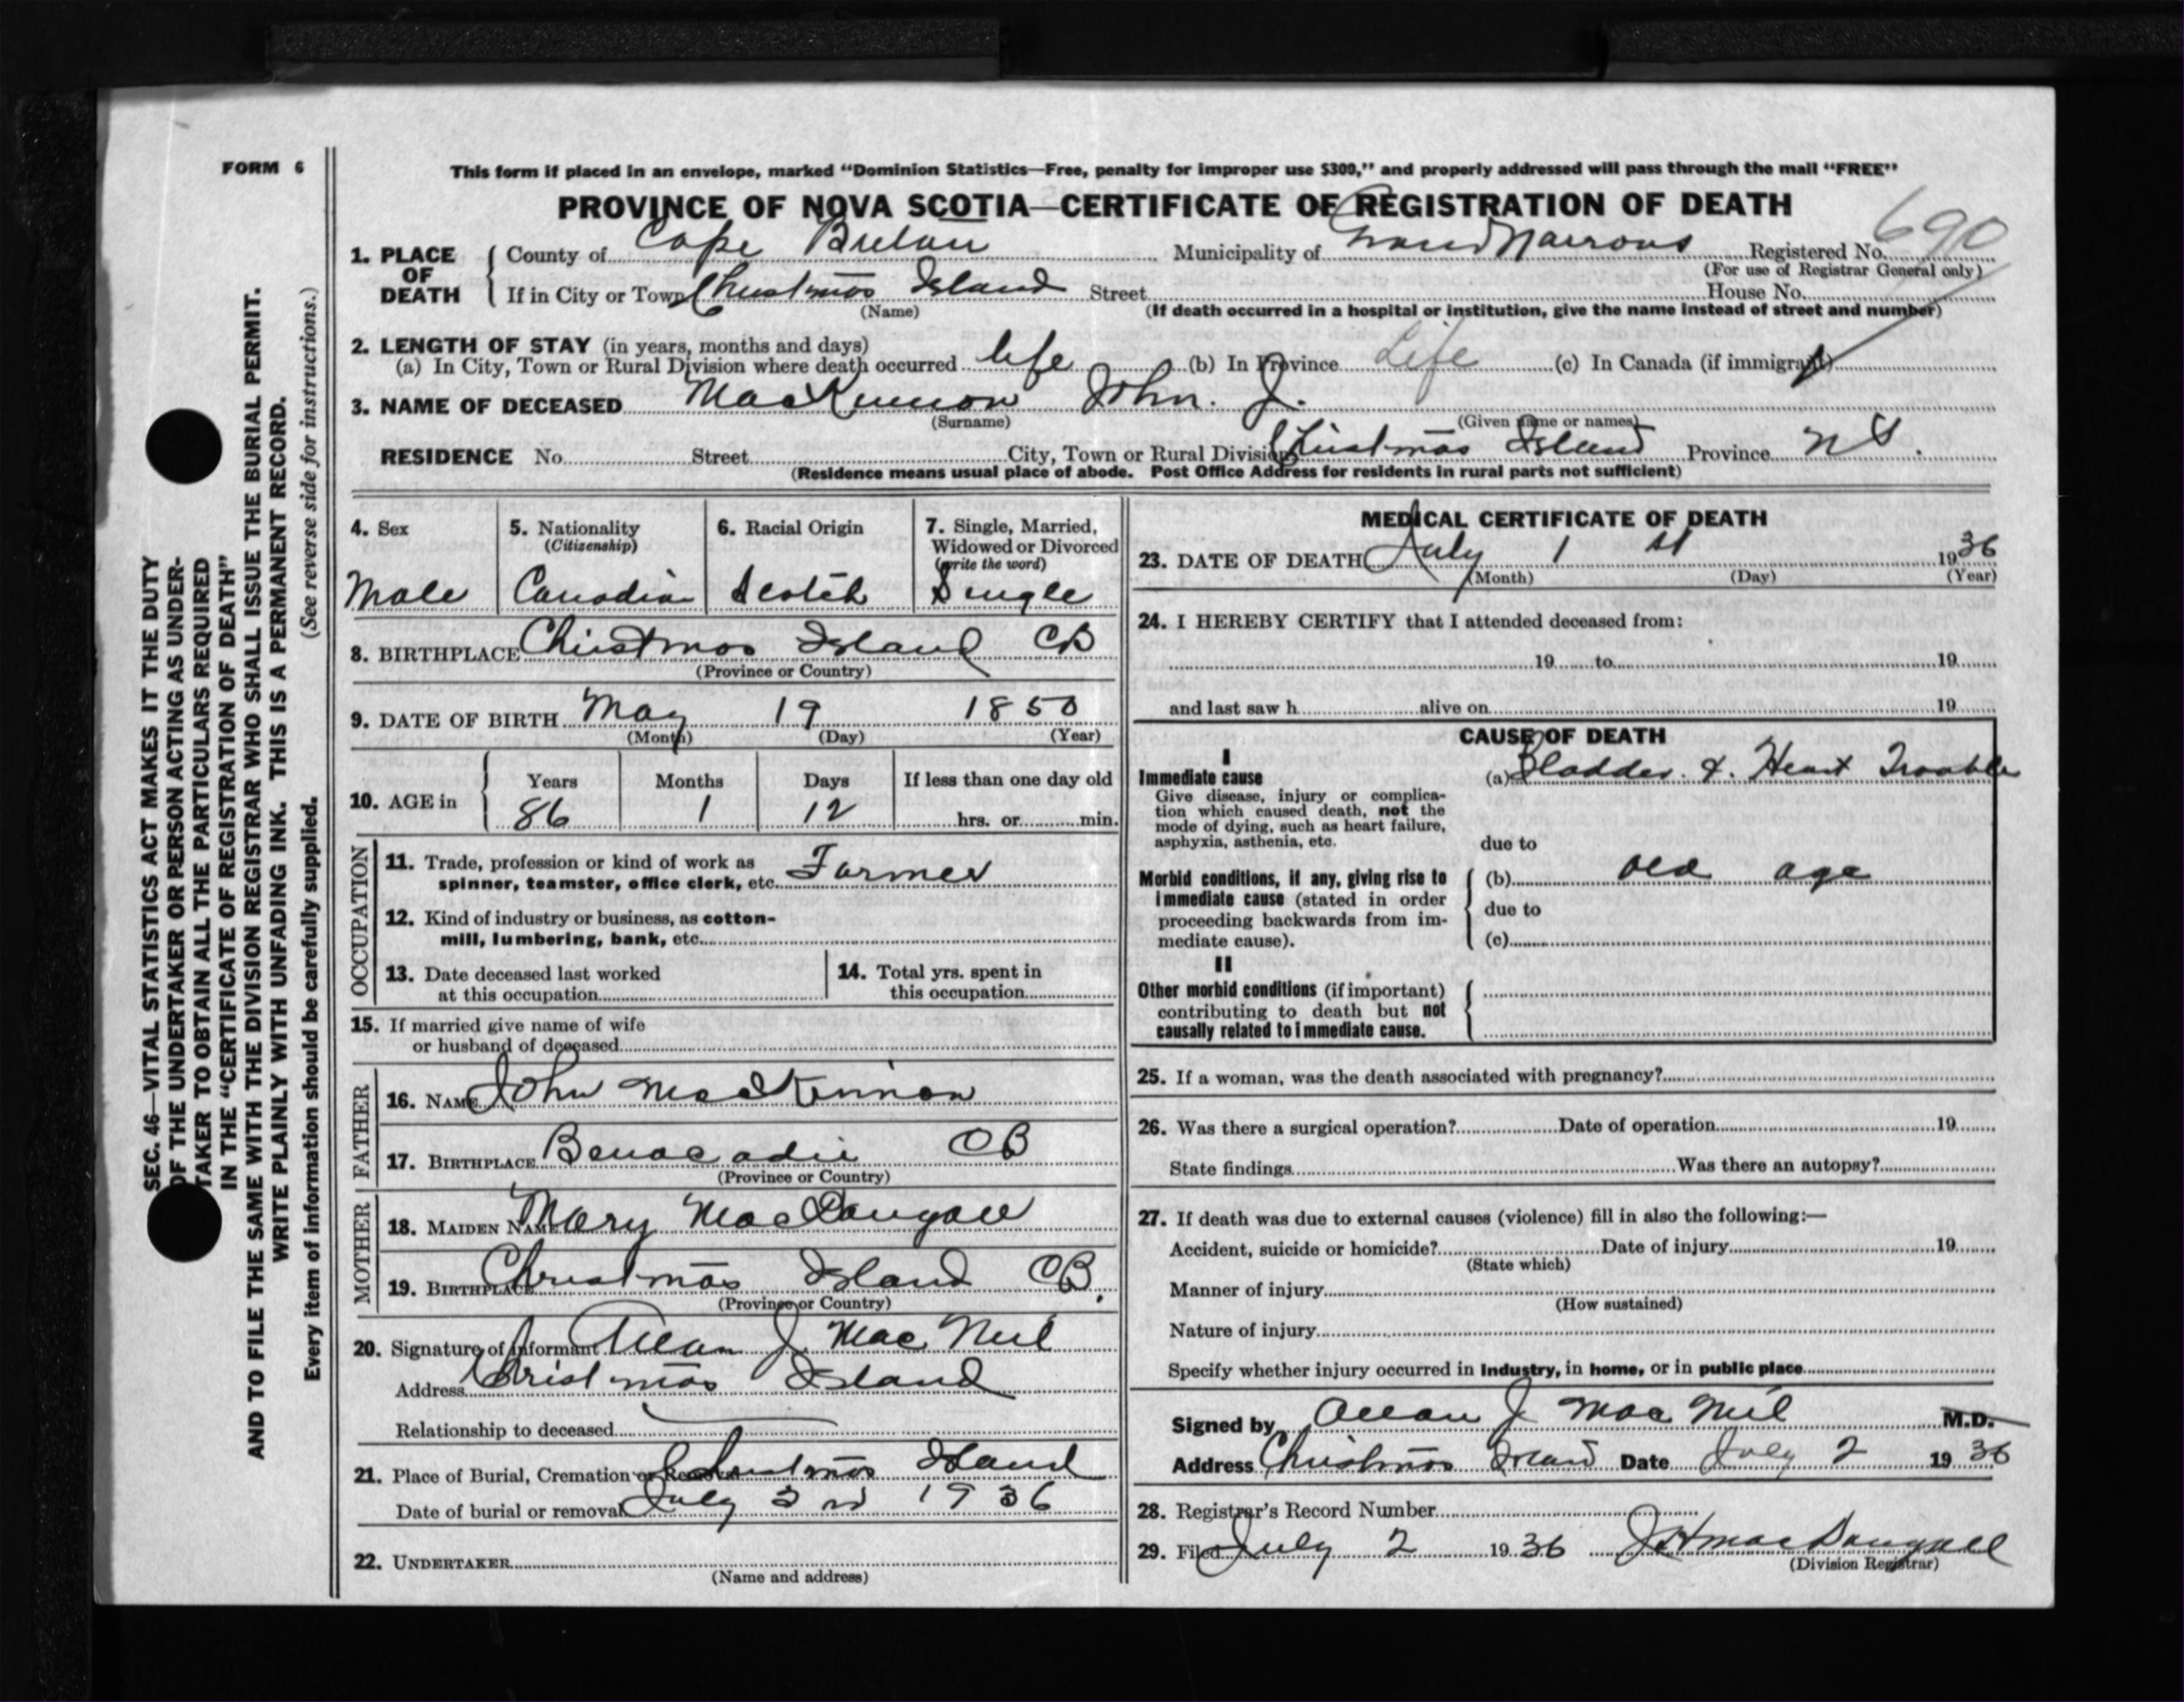 FORM 6
This form if placed in an envelope, marked “Dominion Statistics—Free, penalty for improper use $300,” and properly addressed will pass through the mail “FREE”
PROVINCE OF NOVA SCOTIA—CERTIFICATE OF REGISTRATION OF DEATH
1. PLACE OF DEATH
County of Cape Breton Municipality of Grand Narrows Registered No. 690
(For use of Registrar General only)
If in City or Town Christmas Island Street House No.
(Name) (If death occurred in a hospital or institution, give the name instead of street and number)
2. LENGTH OF STAY (in years, months and days)
(a) In City, Town or Rural Division where death occurred life (b) In Province Life (c) In Canada (if immigrant)
3. NAME OF DECEASED MacKinnon John. J.
(Surname) (Given name or names)
RESIDENCE No. Street City, Town or Rural Division Christmas Island Province N S.
(Residence means usual place of abode. Post Office Address for residents in rural parts not sufficient)
4. Sex
Male
5. Nationality
(Citizenship)
Canadian
6. Racial Origin
Scotch
7. Single, Married,
Widowed or Divorced
(write the word)
Single
8. BIRTHPLACE Christmas Island CB
(Province or Country)
9. DATE OF BIRTH May 19 1850
(Month) (Day) (Year)
10. AGE in
Years Months Days If less than one day old
86 1 12 hrs. or min.
OCCUPATION
11. Trade, profession or kind of work as
spinner, teamster, office clerk, etc. Farmer
12. Kind of industry or business, as cotton-
mill, lumbering, bank, etc.
13. Date deceased last worked
at this occupation
14. Total yrs. spent in
this occupation
15. If married give name of wife
or husband of deceased
FATHER
16. NAME John MacKinnon
17. BIRTHPLACE Benacadie CB
(Province or Country)
MOTHER
18. MAIDEN NAME Mary MacDougall
19. BIRTHPLACE Christmas Island CB.
(Province or Country)
20. Signature of informant Allan J. MacNeil
Address Christmas Island
Relationship to deceased
21. Place of Burial, Cremation or Removal Christmas Island
Date of burial or removal July 3rd 1936
22. UNDERTAKER
(Name and address)
MEDICAL CERTIFICATE OF DEATH
23. DATE OF DEATH July 1 st 1936
(Month) (Day) (Year)
24. I HEREBY CERTIFY that I attended deceased from:
19 to 19
and last saw h alive on 19
CAUSE OF DEATH
I
Immediate cause
Give disease, injury or complica-
tion which caused death, not the
mode of dying, such as heart failure,
asphyxia, asthenia, etc.
(a) Bladder & Heart Trouble
due to
Morbid conditions, if any, giving rise to
immediate cause (stated in order
proceeding backwards from im-
mediate cause).
(b) old age
due to
(c)
II
Other morbid conditions (if important)
contributing to death but not
causally related to immediate cause.
25. If a woman, was the death associated with pregnancy?
26. Was there a surgical operation? Date of operation 19
State findings Was there an autopsy?
27. If death was due to external causes (violence) fill in also the following:—
Accident, suicide or homicide? Date of injury 19
(State which)
Manner of injury
(How sustained)
Nature of injury
Specify whether injury occurred in industry, in home, or in public place
Signed by Allan J MacNeil M.D.
Address Christmas Island Date July 2 1936
28. Registrar's Record Number
29. Filed July 2 1936 J H MacDougall
(Division Registrar)
SEC. 46—VITAL STATISTICS ACT MAKES IT THE DUTY
OF THE UNDERTAKER OR PERSON ACTING AS UNDER-
TAKER TO OBTAIN ALL THE PARTICULARS REQUIRED
IN THE “CERTIFICATE OF REGISTRATION OF DEATH”
AND TO FILE THE SAME WITH THE DIVISION REGISTRAR WHO SHALL ISSUE THE BURIAL PERMIT.
WRITE PLAINLY WITH UNFADING INK. THIS IS A PERMANENT RECORD.
Every item of information should be carefully supplied. (See reverse side for instructions.)